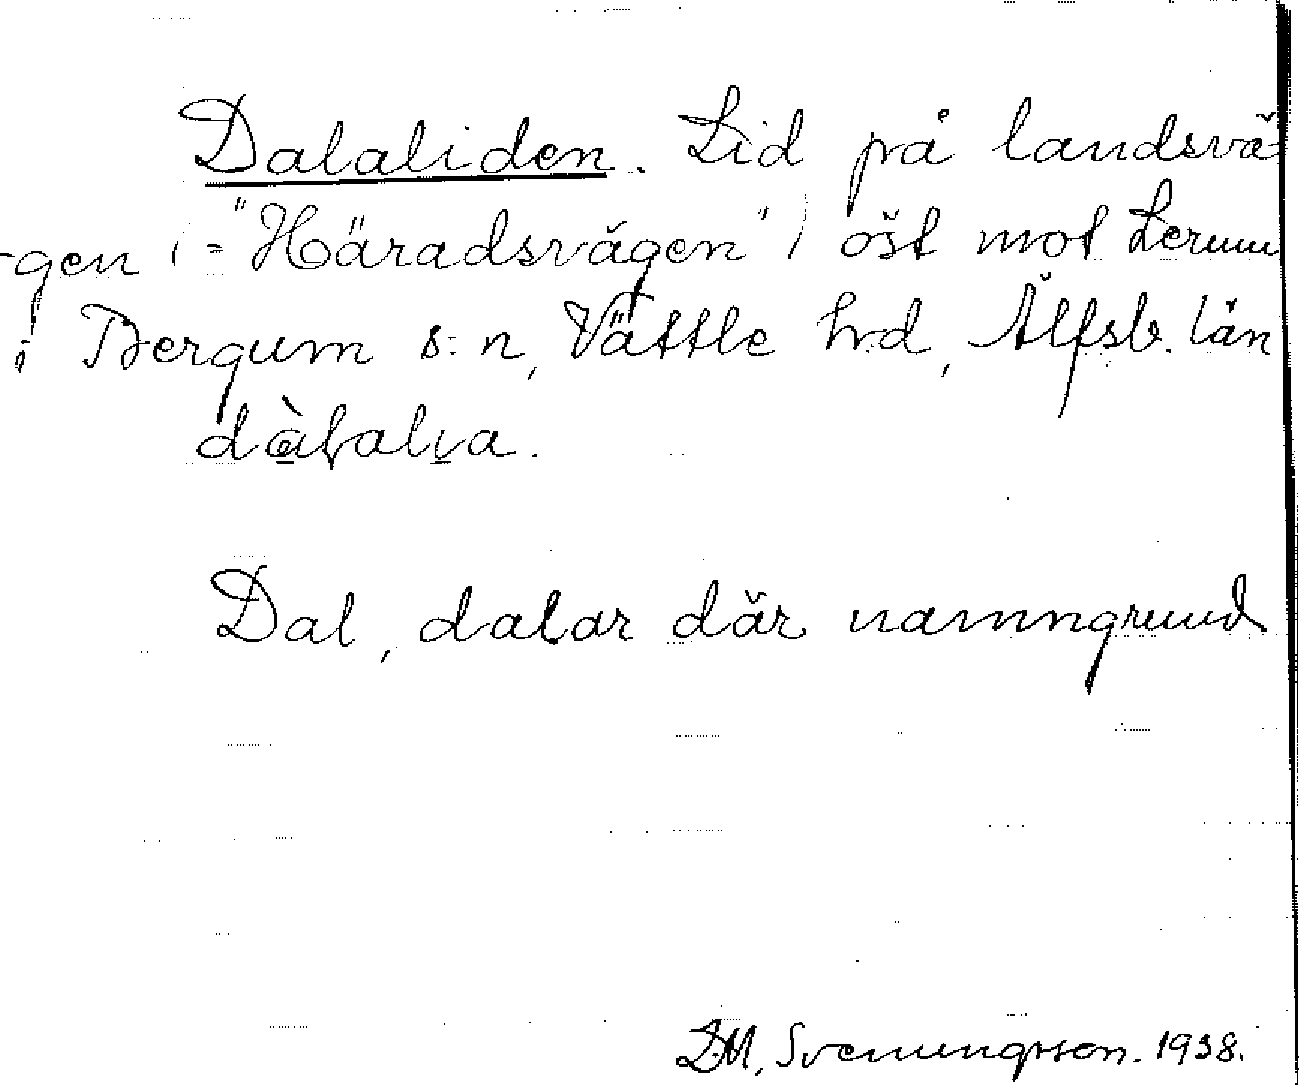 Dalaliden. Lid på landsvä
-gen (= "Häradsvägen") öst mot Lerum
i Bergum s:n, Vättle hrd, Älfsb. län
dàlalia.
Dal, dalar där namngrund
D.M. Svenungsson. 1938.